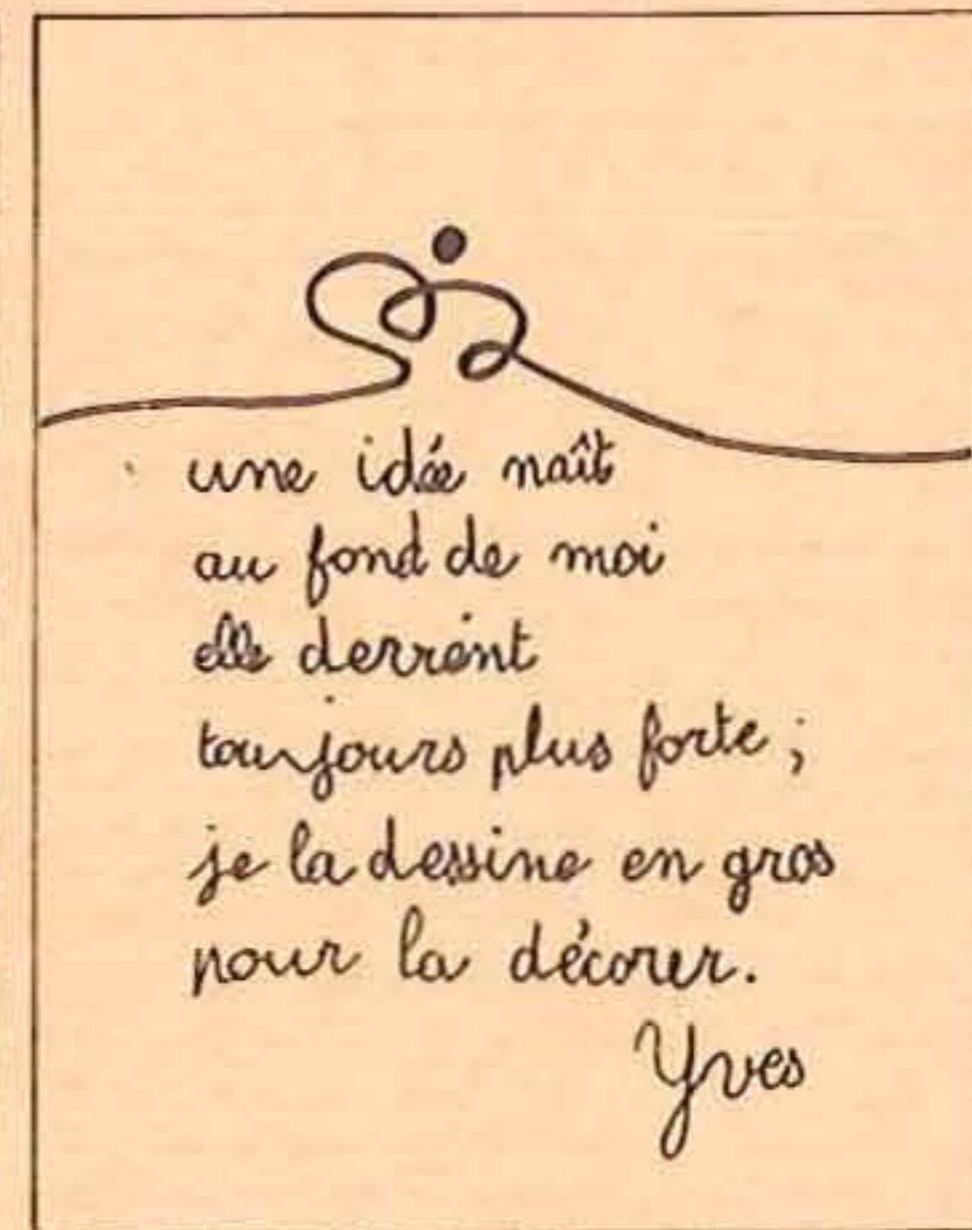 une idée naît
au fond de moi
elle devient
toujours plus forte ;
je la dessine en gros
pour la décorer.
Yves